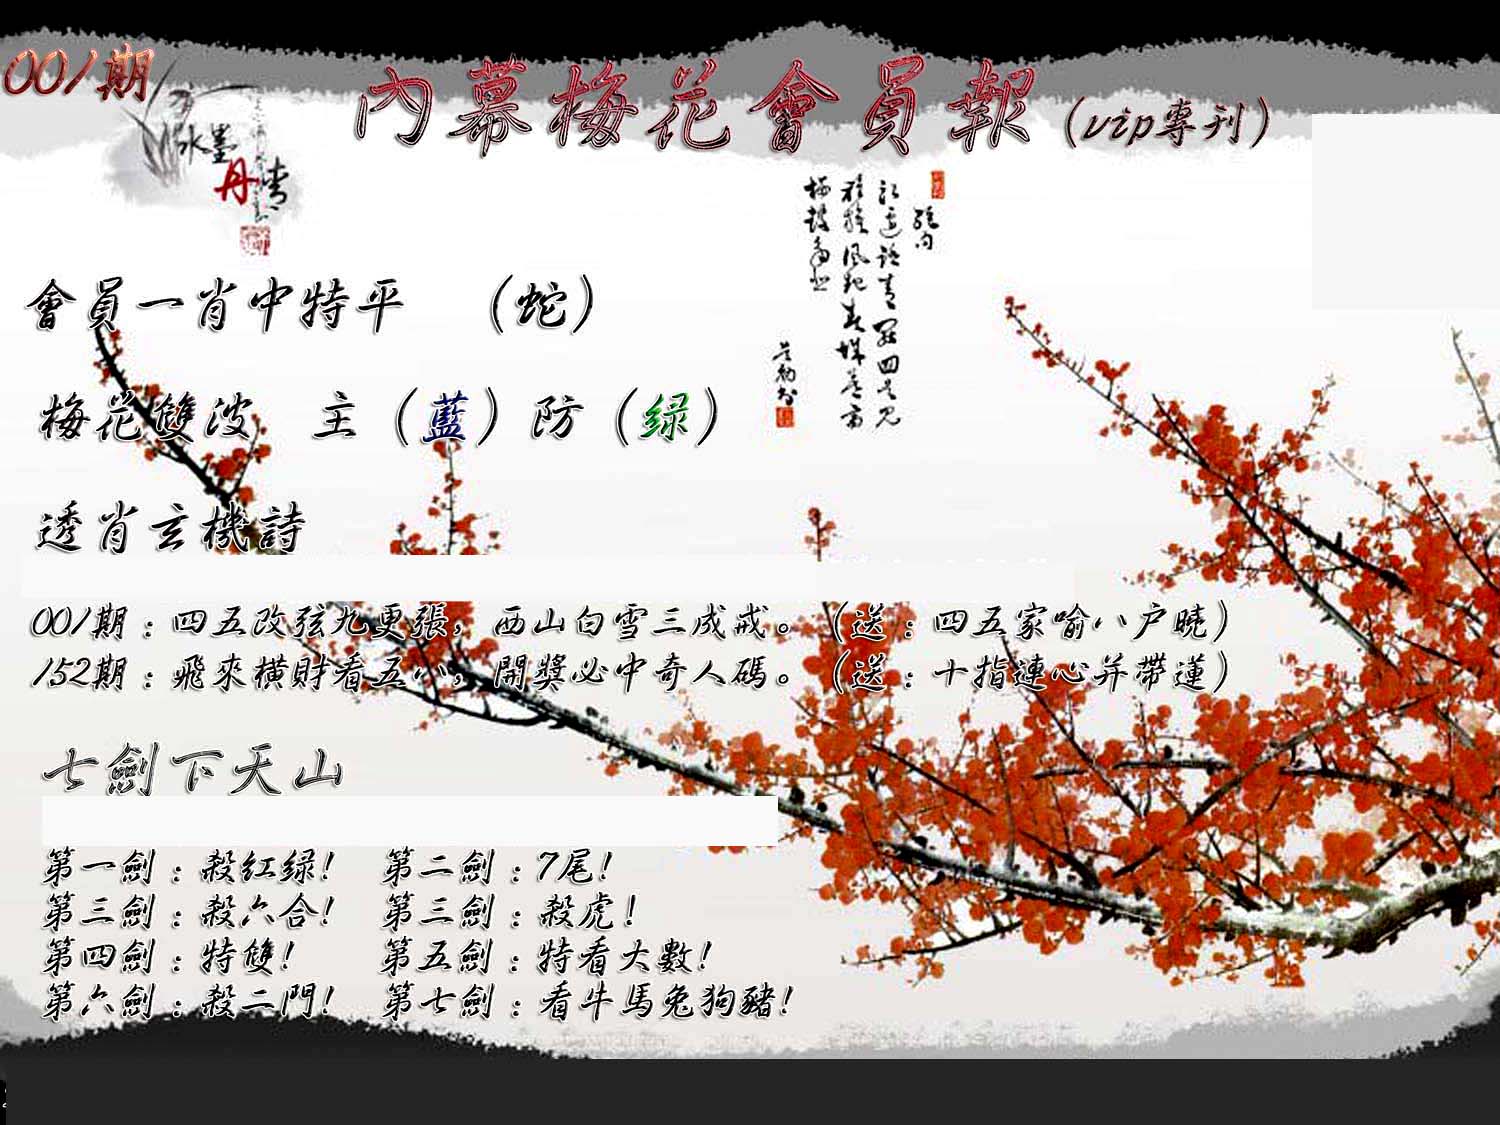 001期
內幕梅花會員報（vip專刊）
水墨
丹青
會員一肖中特平 （蛇）
梅花雙波 主（藍）防（绿）
透肖玄機詩
001期：四五改弦九更張，西山白雪三成戒。（送：四五家喻八户曉）
152期：飛來横財看五小，開獎必中奇人碼。（送：十指連心并帶蓮）
七劍下天山
第一劍：殺紅绿! 第二劍：7尾!
第三劍：殺六合! 第三劍：殺虎!
第四劍：特雙! 第五劍：特看大數!
第六劍：殺二門! 第七劍：看牛馬兔狗豬!